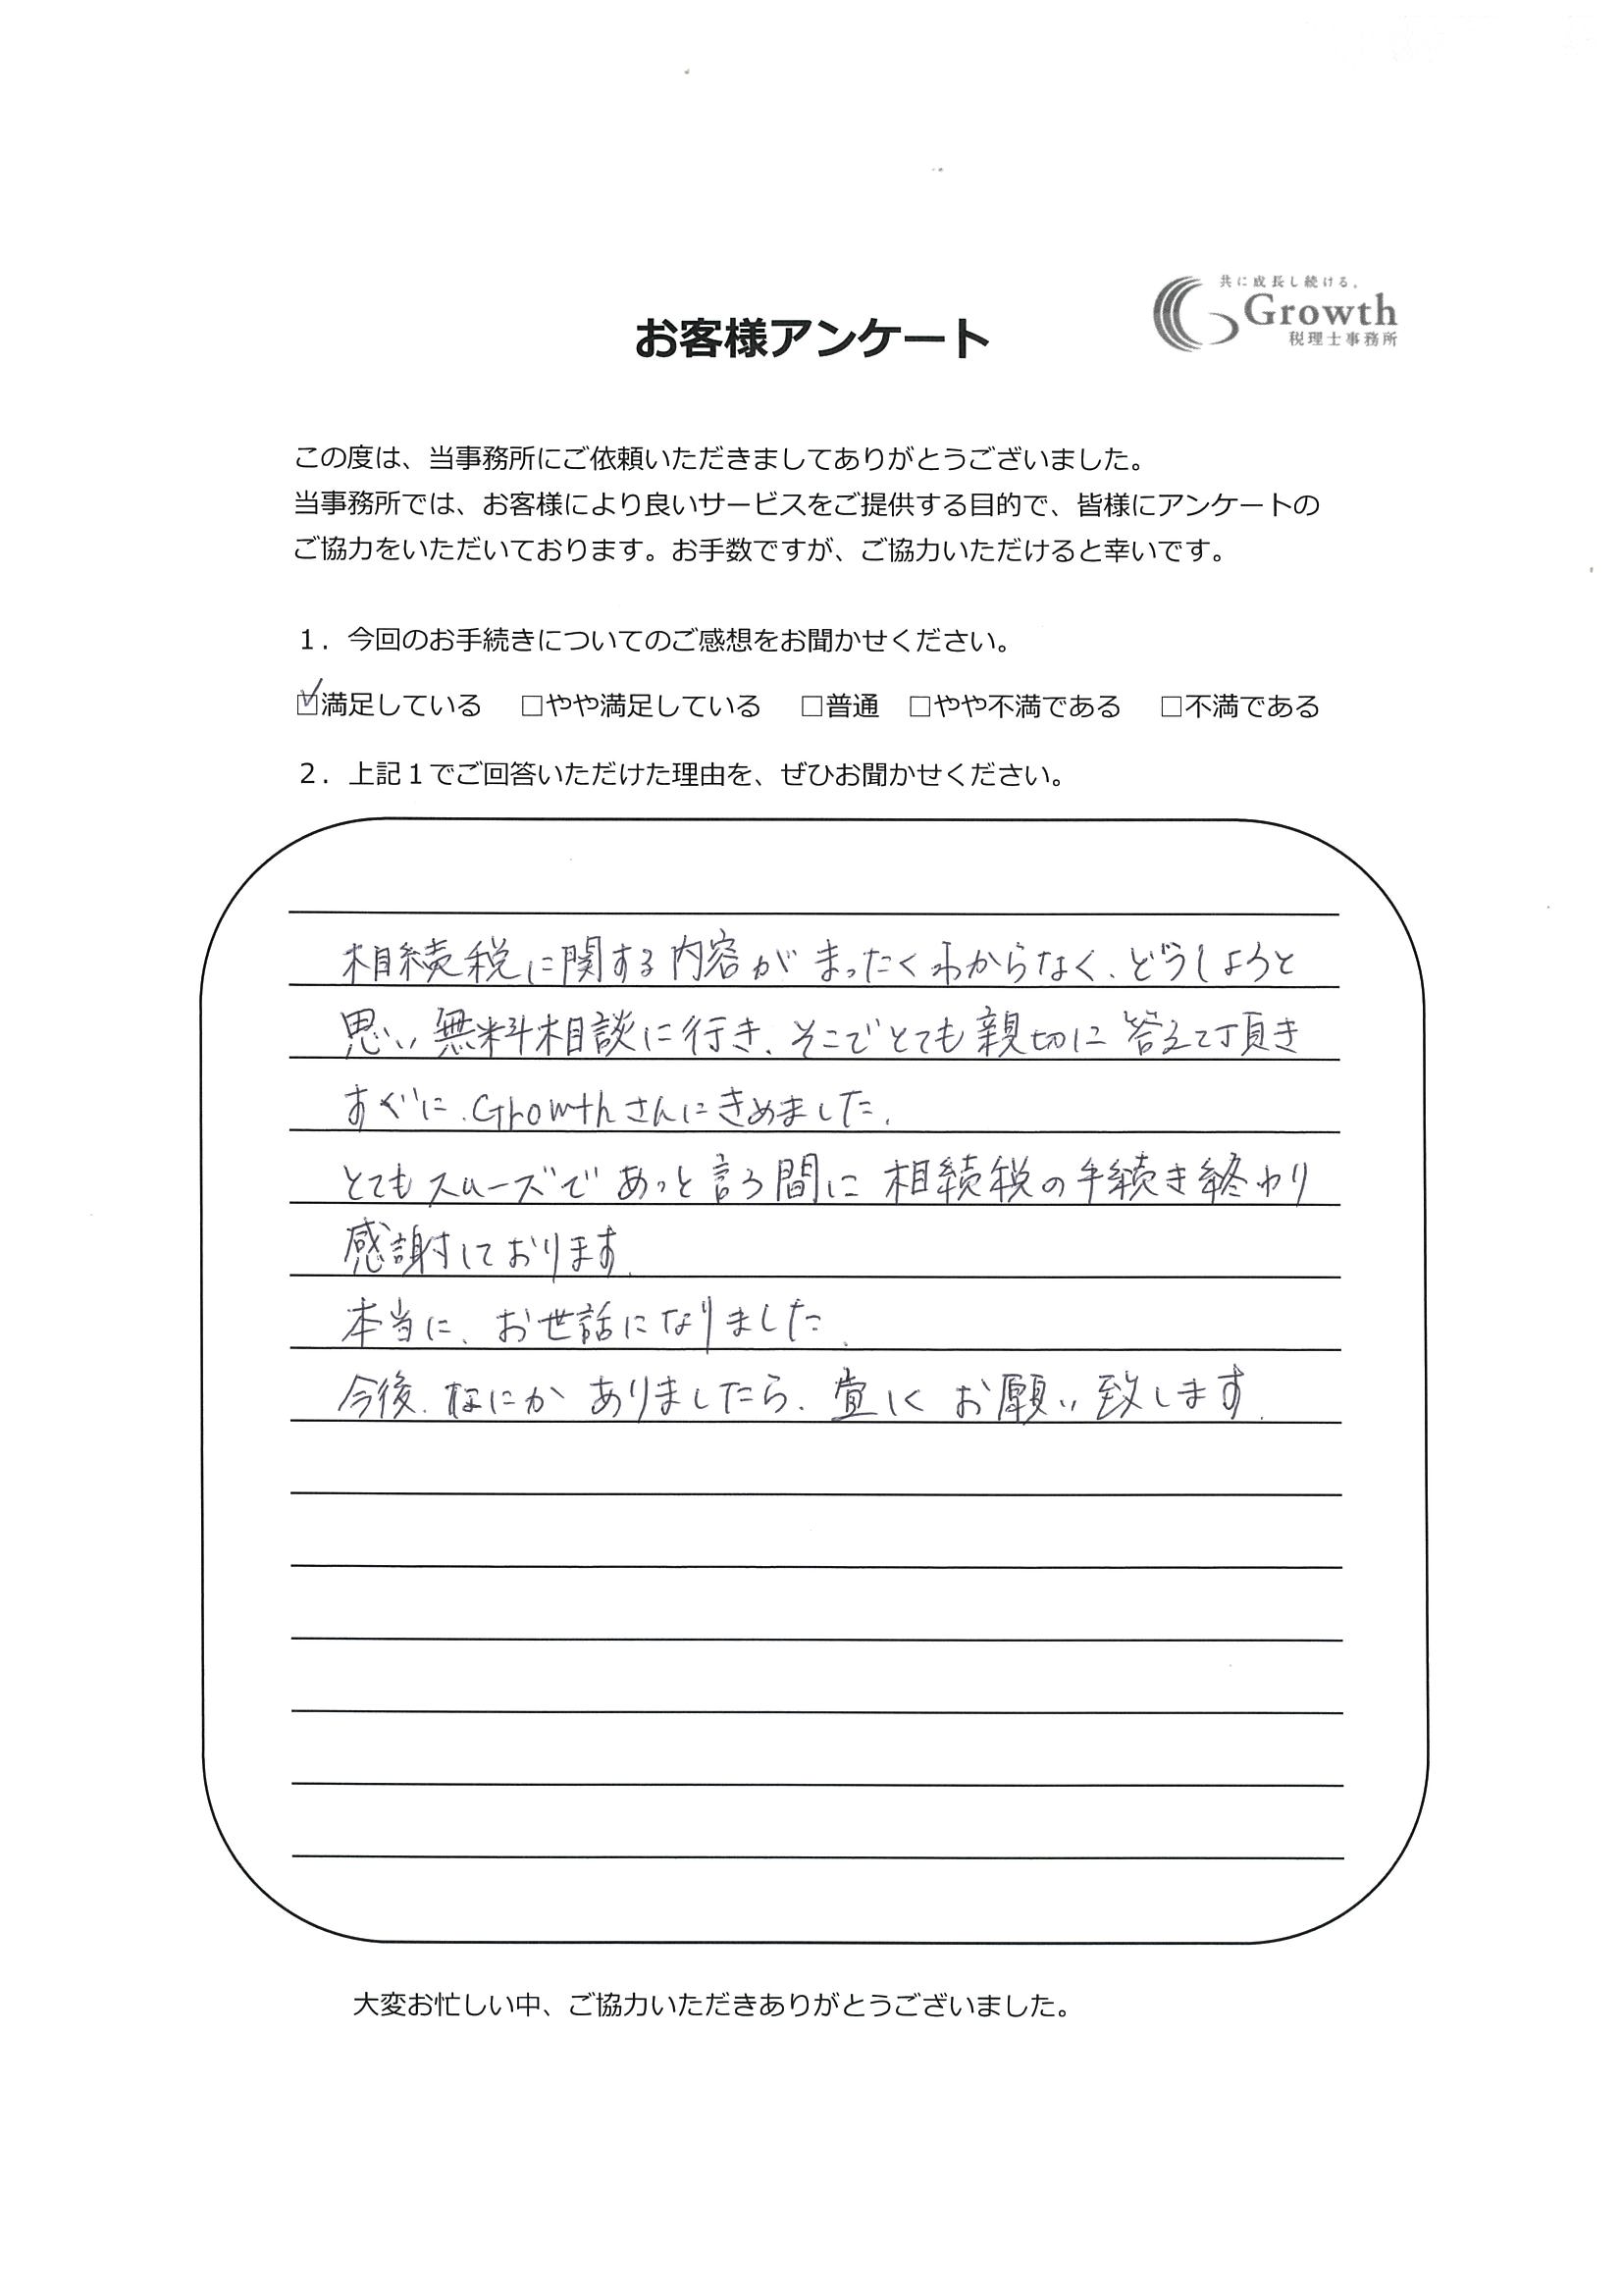 共に成長し続ける。
Growth
税理士事務所
お客様アンケート
この度は、当事務所にご依頼いただきましてありがとうございました。
当事務所では、お客様により良いサービスをご提供する目的で、皆様にアンケートの
ご協力をいただいております。お手数ですが、ご協力いただけると幸いです。
１．今回のお手続きについてのご感想をお聞かせください。
☑満足している □やや満足している □普通 □やや不満である □不満である
２．上記１でご回答いただけた理由を、ぜひお聞かせください。
相続税に関する内容がまったくわからなく、どうしようと
思い無料相談に行き、そこでとても親切に答えて頂き
すぐに、Growthさんにきめました。
とてもスムーズであっと言う間に相続税の手続き終わり
感謝しております。
本当に、お世話になりました。
今後、なにかありましたら、宜しくお願い致します。
大変お忙しい中、ご協力いただきありがとうございました。